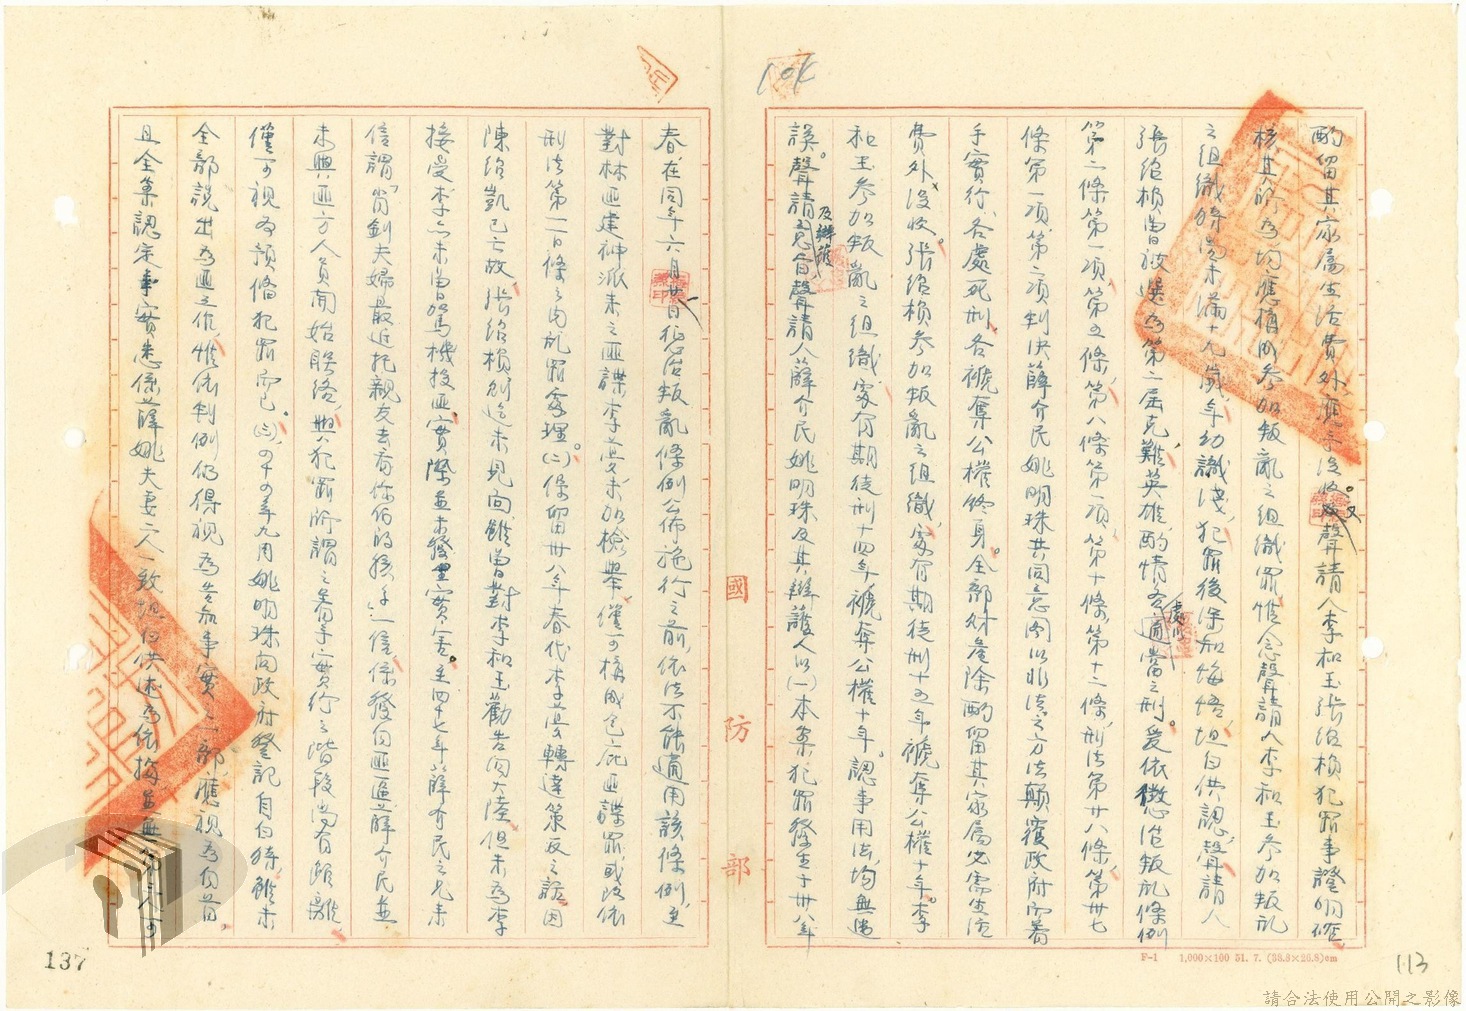 酌留其家屬生活費外應予沒收。又聲請人李和玉張紹楨犯罪事證明確
核其所為均應構成參加叛亂之組織罪惟念聲請人李和玉參加叛亂
之組織時尚未滿十九歲年幼識淺,犯罪後深知悔悟,坦白供認,聲請人
張紹楨曾被選為第二屆克難英雄,酌情各處以適當之刑。爰依懲治叛亂條例
第二條第一項、第五條、第八條第一項、第十條、第十二條,刑法第廿八條,第卅七
條第一項、第二項判決薛介民姚明珠共同意圖以非法之方法顛覆政府而著
手實行,各處死刑,各褫奪公權終身。全部財產除酌留其家屬必需生活
費外沒收。張紹楨參加叛亂之組織,處有期徒刑十五年褫奪公權十年。李
和玉參加叛亂之組織處有期徒刑十四年褫奪公權十年。認事用法,均無違
誤。聲請意旨聲請人薛介民姚明珠及其辯護人以(一)本案犯罪發生于卅八年
及辯護
春在同年六月廿日懲治叛亂條例公佈施行之前,依法不能適用該條例,至
對林匪建神派來之匪諜李 未加檢舉,僅可構成包庇匪諜罪,或改依
刑法第一一〇條之內亂罪處理。(二)保留卅八年春代李 轉達策反之話因
陳紹凱已亡故,張紹楨則迄未見面,雖曾對李和玉勸告向大陸但未為李
接受,李亦未曾駕機投匪,實際並未發生實害。至四十七年薛介民之兄來
信謂「肖釗夫婦最近托親友去看你們的孩子」一信,係發自匪區,薛介民並
未與匪方人員開始聯絡,與犯罪所謂之着手實行之階段尚有距離,
僅可視為預備犯罪而已。(三)四十四年九月姚明珠向政府登記自白時,雖未
全部說出為匪工作,惟依判例仍得視為告知事實之一部,應視為自首,
且全案認定事實悉係薛姚夫妻二人一致坦白供述為依據並無第三人可
國防部
F-1 1,000×100 51. 7. (38.8×26.8)cm
113
137
請合法使用公開之影像